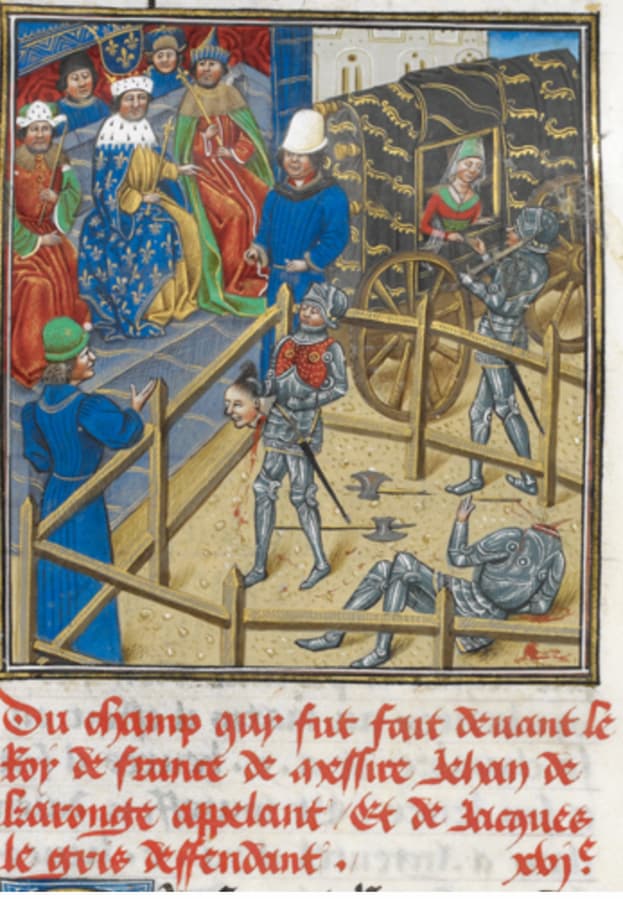 Du champ quy fut fait deuant le
Roy de france de messire Jehan de
karonge appelant Et de Jacques
le gris deffendant . xvj.ᵉ